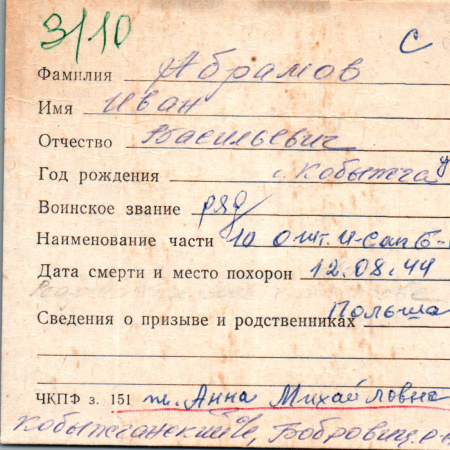 3/10 С
Фамилия Абрамов
Имя Иван
Отчество Васильевич
Год рождения с. Кобыжча
Воинское звание ряд/
Наименование части 10 о.шт. и-сап б-
Дата смерти и место похорон 12.08.44
Польша
Сведения о призыве и родственниках
ЧКПФ з. 151 ж. Анна Михайловна
Кобыжчанский Бобровиц. р-н